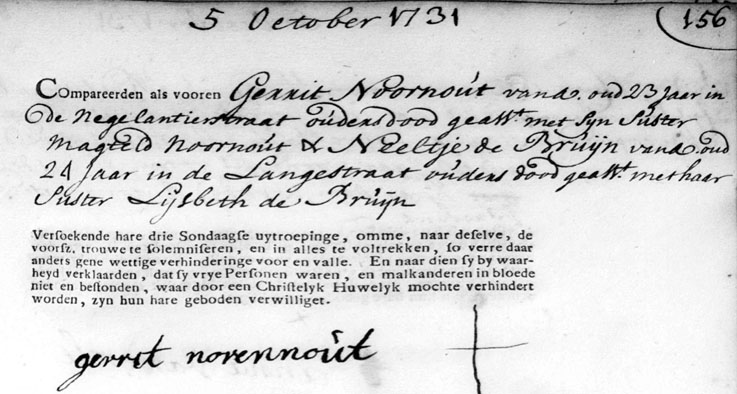 5 October 1731
156
Compareerden als vooren Gerrit Noornout van A. oud 23 Jaar in
de Negelantierstraat ouders dood geadt. met Syn Suster
Magteld Noornout & Neeltje de Bruijn van A. oud
24 Jaar in de Langestraat ouders dood geadt. met haar
Suster Lijsbeth de Bruijn
Versoekende hare drie Sondaagse uytroepinge, omme, naar deselve, de
voorsz. trouwe te solemniseren, en in alles te voltrekken, so verre daar
anders gene wettige verhinderinge voor en valle. En naar dien sy by waar-
heyd verklaarden, dat sy vrye Personen waren, en malkanderen in bloede
niet en bestonden, waar door een Christelyk Huwelyk mochte verhindert
worden, zyn hun hare geboden verwilliget.
gerrit norennout